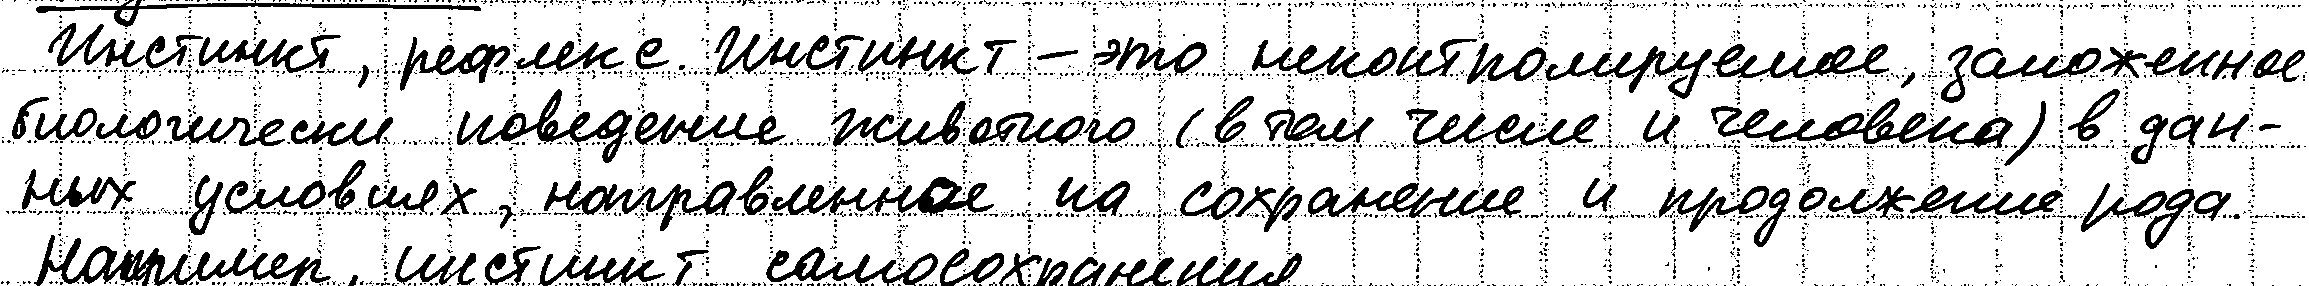 Инстинкт, рефлекс. Инстинкт – это неконтролируемое, заложенное
биологически поведение животного (в том числе и человека) в дан-
ных условиях, направленное на сохранение и продолжение рода.
Например, инстинкт самосохранения